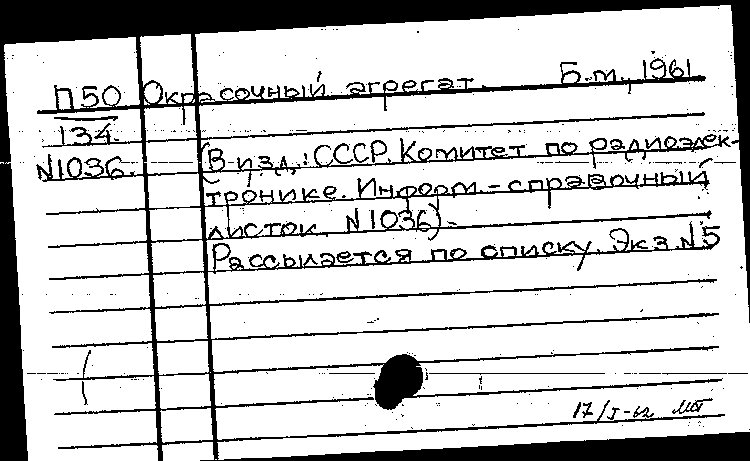 П50 Окрасочный агрегат. Б.м., 1961
134.
N1036. (В изд.: СССР. Комитет по радиоэлек-
тронике. Информ.-справочный
листок. N1036).
Рассылается по списку. Экз. N5
17/I-62